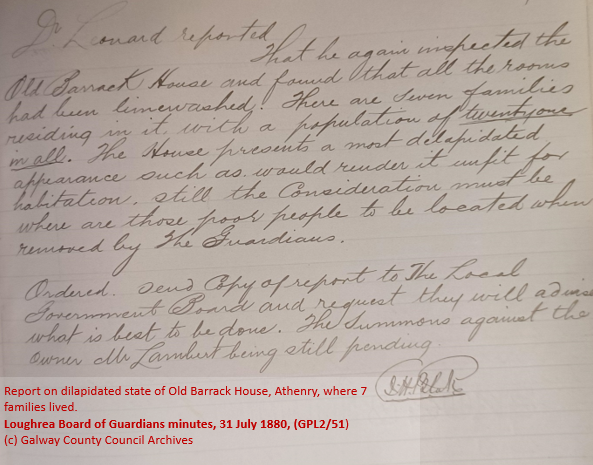 Dr. Leonard reported
That he again inspected the
Old Barrack House and found that all the rooms
had been limewashed. There are seven families
residing in it, with a population of twentyone
in all. The House presents a most delapidated
appearance such as would render it unfit for
habitation. still the Consideration must be
where are those poor people to be located when
removed by The Guardians.
Ordered. Send Copy of report to The Local
Government Board and request they will advise
what is best to be done. The Summons against the
Owner Mr Lambert being still pending.
Report on dilapidated state of Old Barrack House, Athenry, where 7
families lived.
Loughrea Board of Guardians minutes, 31 July 1880, (GPL2/51)
(c) Galway County Council Archives